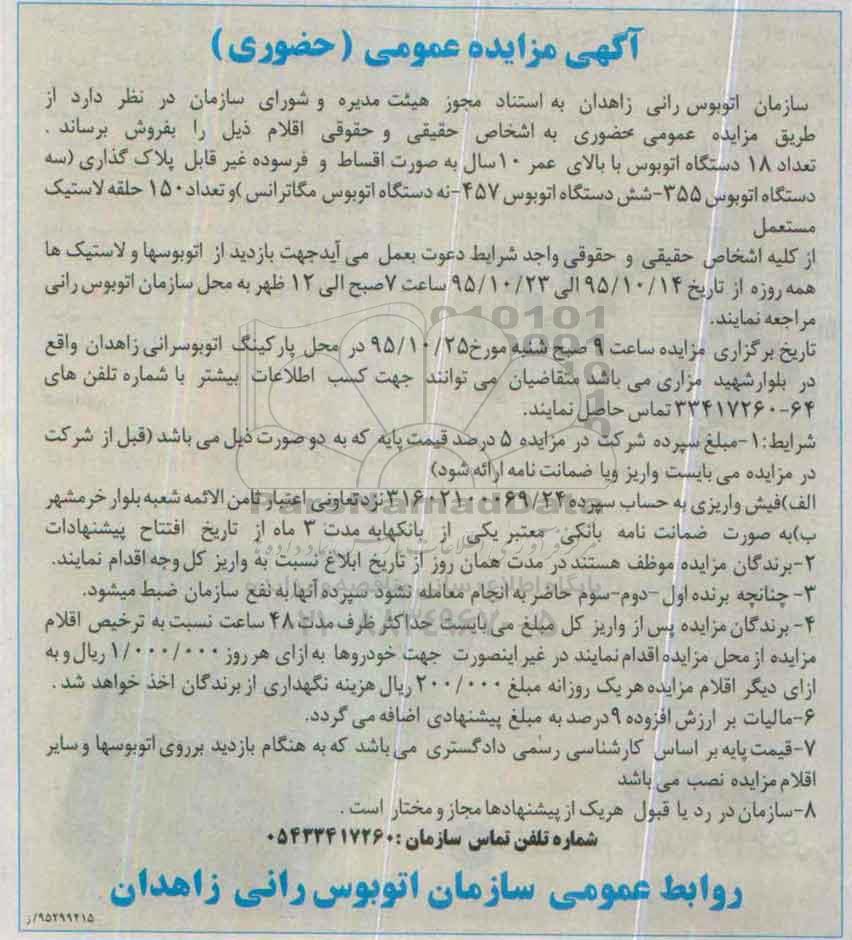 آگهی مزایده عمومی (حضوری)
سازمان اتوبوس رانی زاهدان به استناد مجوز هیئت مدیره و شورای سازمان در نظر دارد از
طریق مزایده عمومی حضوری به اشخاص حقیقی و حقوقی اقلام ذیل را بفروش برساند .
تعداد ۱۸ دستگاه اتوبوس با بالای عمر ۱۰ سال به صورت اقساط و فرسوده غیر قابل پلاک گذاری (سه
دستگاه اتوبوس ۳۵۵-شش دستگاه اتوبوس ۴۵۷-نه دستگاه اتوبوس مگاترانس )و تعداد ۱۵۰ حلقه لاستیک
مستعمل
از کلیه اشخاص حقیقی و حقوقی واجد شرایط دعوت بعمل می آید جهت بازدید از اتوبوسها و لاستیک ها
همه روزه از تاریخ ۹۵/۱۰/۱۴ الی ۹۵/۱۰/۲۳ ساعت ۷ صبح الی ۱۲ ظهر به محل سازمان اتوبوس رانی
مراجعه نمایند.
تاریخ برگزاری مزایده ساعت ۹ صبح شنبه مورخ ۹۵/۱۰/۲۵ در محل پارکینگ اتوبوسرانی زاهدان واقع
در بلوار شهید مزاری می باشد متقاضیان می توانند جهت کسب اطلاعات بیشتر با شماره تلفن های
۳۳۴۱۷۲۶۰-۶۴ تماس حاصل نمایند.
شرایط:۱-مبلغ سپرده شرکت در مزایده ۵ درصد قیمت پایه که به دو صورت ذیل می باشد (قبل از شرکت
در مزایده می بایست واریز ویا ضمانت نامه ارائه شود)
الف)فیش واریزی به حساب سپرده ۳۱۶۰۲۱۰۰۰۶۹/۲۴ نزد تعاونی اعتبار ثامن الائمه شعبه بلوار خرمشهر
ب)به صورت ضمانت نامه بانکی معتبر یکی از بانکهابه مدت ۳ ماه از تاریخ افتتاح پیشنهادات
۲-برندگان مزایده موظف هستند در مدت همان روز از تاریخ ابلاغ نسبت به واریز کل وجه اقدام نمایند.
۳- چنانچه برنده اول -دوم-سوم حاضر به انجام معامله نشود سپرده آنها به نفع سازمان ضبط میشود.
۴- برندگان مزایده پس از واریز کل مبلغ می بایست حداکثر ظرف مدت ۴۸ ساعت نسبت به ترخیص اقلام
مزایده از محل مزایده اقدام نمایند در غیر اینصورت جهت خودروها به ازای هر روز ۱/۰۰۰/۰۰۰ ریال و به
ازای دیگر اقلام مزایده هر یک روزانه مبلغ ۲۰۰/۰۰۰ ریال هزینه نگهداری از برندگان اخذ خواهد شد .
۶-مالیات بر ارزش افزوده ۹ درصد به مبلغ پیشنهادی اضافه می گردد.
۷-قیمت پایه بر اساس کارشناسی رسمی دادگستری می باشد که به هنگام بازدید برروی اتوبوسها و سایر
اقلام مزایده نصب می باشد
۸-سازمان در رد یا قبول هریک از پیشنهادها مجاز و مختار است .
شماره تلفن تماس سازمان :۰۵۴۳۳۴۱۷۲۶۰
روابط عمومی سازمان اتوبوس رانی زاهدان
۹۵۲۹۹۲۱۵/ز
ParsNamadData